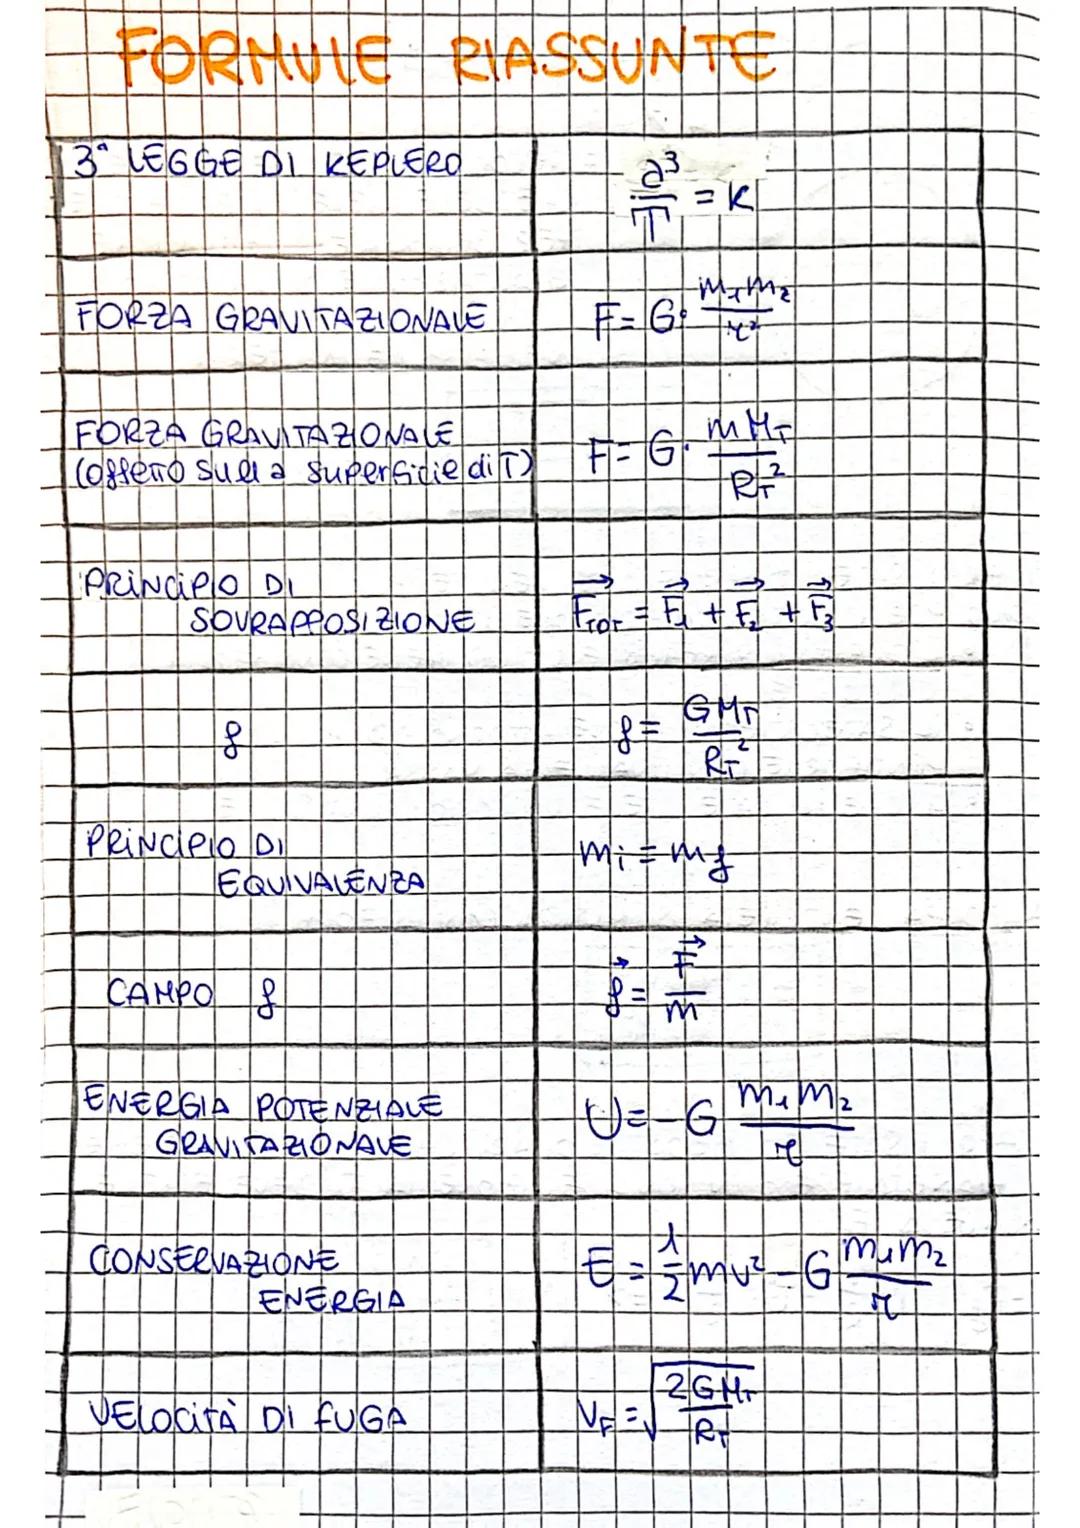 FORMULE RIASSUNTE
3ª LEGGE DI KEPLERO
a³/T = K
FORZA GRAVITAZIONALE
F = G · m₁m₂/r²
FORZA GRAVITAZIONALE
(oggetto sulla superficie di T)
F = G · mM_T/R_T²
PRINCIPIO DI
SOVRAPPOSIZIONE
F⃗_TOT = F⃗₁ + F⃗₂ + F⃗₃
g
g = GM_T/R_T²
PRINCIPIO DI
EQUIVALENZA
mᵢ = m_g
CAMPO g
g⃗ = F⃗/m
ENERGIA POTENZIALE
GRAVITAZIONALE
U = -G m₁m₂/r
CONSERVAZIONE
ENERGIA
E = 1/2 mv² - G m₁m₂/r
VELOCITÀ DI FUGA
V_F = √(2GM_T/R_T)